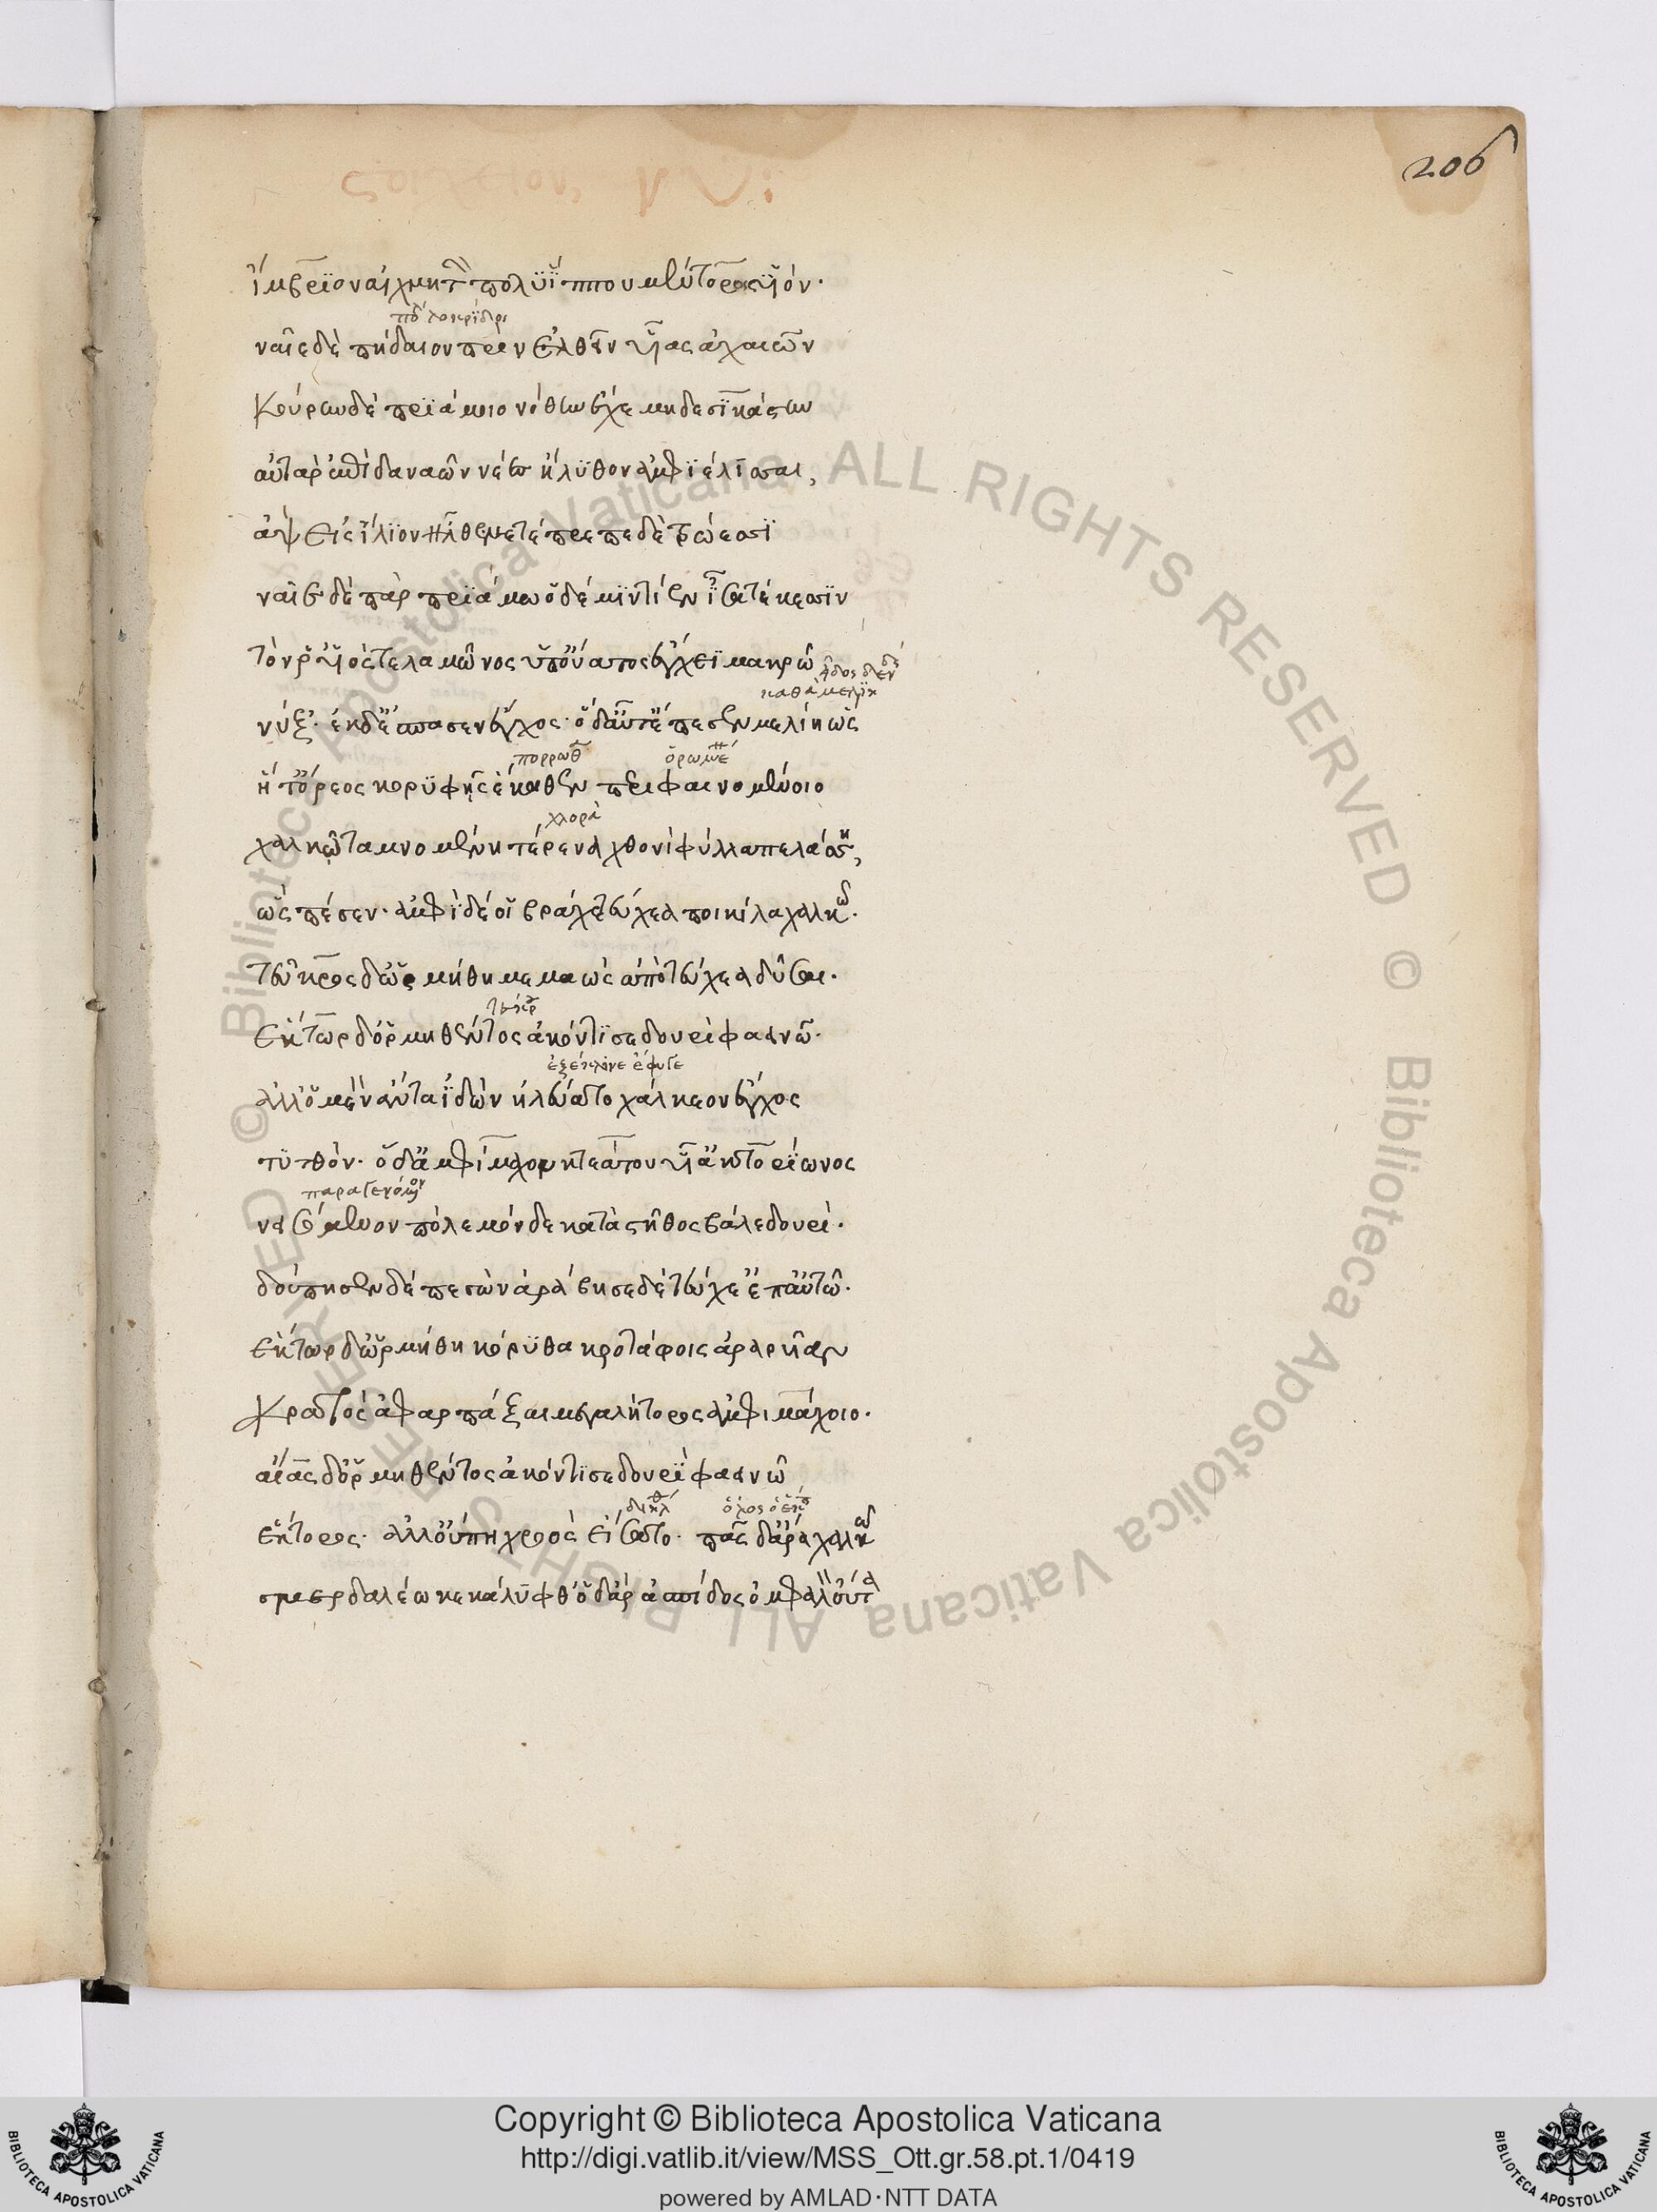 206
ἴμβριον αἰχμητὴν πολυΐππου μέντορος υἱόν·
ναῖε δὲ πήδαιον πρὶν ἐλθεῖν υἷας ἀχαιῶν
κούρην δὲ πριάμοιο νόθην ἔχε μηδεσικάστην
αὐτὰρ ἐπεὶ δαναῶν νέες ἤλυθον ἀμφιέλισσαι,
ἂψ εἰς ἴλιον ἦλθε μετέπρεπε δὲ τρώεσσι
ναῖε δὲ πὰρ πριάμω ὁ δέ μιν τίεν ἶσα τέκεσσιν
τόν ρ υἱὸς τελαμῶνος ὑπ' οὔατος ἔγχεϊ μακρῶ
καθὰ μελίη
νύξ· ἐκ δ' ἔσπασεν ἔγχος· ὁ δ' αὖτ' ἔπεσεν μελίη ὣς
πορρωθ ὁρωμένε
ἥ τ' ὄρεος κορυφῆς ἕκαθεν περιφαινομένοιο
χλορὰ
χαλκῶ ταμνομένη τέρενα χθονὶ φύλλα πελάσση,
ὣς πέσεν· ἀμφὶ δέ οἱ βράχε τεύχεα ποικίλα χαλκῶ·
τεῦκρος δ' ὡρμήθη μεμαὼς ἀπὸ τεύχεα δῦσαι·
ἕκτωρ δ' ὁρμηθέντος ἀκόντισε δουρὶ φαεινῶ·
ἐξέκλινε ἔφυγε
ἀλλ' ὁ μὲν ἄντα ἰδὼν ἠλεύατο χάλκεον ἔγχος
τυτθόν· ὁ δ' ἀμφίμαχον κτεάτου υἷ' ἀκτορίωνος
παραγενόμενον
νισσόμενον πόλεμόνδε κατὰ στῆθος βάλε δουρί·
δούπησεν δὲ πεσὼν ἀράβησε δὲ τεύχε' ἐπ' αὐτῶ·
ἕκτωρ δ' ὡρμήθη κόρυθα κροτάφοις ἀραρῆαν
κρατὸς ἀφαρπάξαι μεγαλήτορος ἀμφιμάχοιο·
αἴας δ' ὁρμηθέντος ἀκόντισε δουρὶ φαεινῶ
ὅλος ὁ ἕκτωρ
ἕκτορος· ἀλλ' οὔπη χροὸς εἴσατο· πᾶς δ' ἄρα χαλκῶ
σμερδαλέω κεκάλυφθ' ὁ δ' ἄρ' ἀσπίδος ὀμφαλὸν οὖτα
Copyright © Biblioteca Apostolica Vaticana
http://digi.vatlib.it/view/MSS_Ott.gr.58.pt.1/0419
powered by AMLAD·NTT DATA